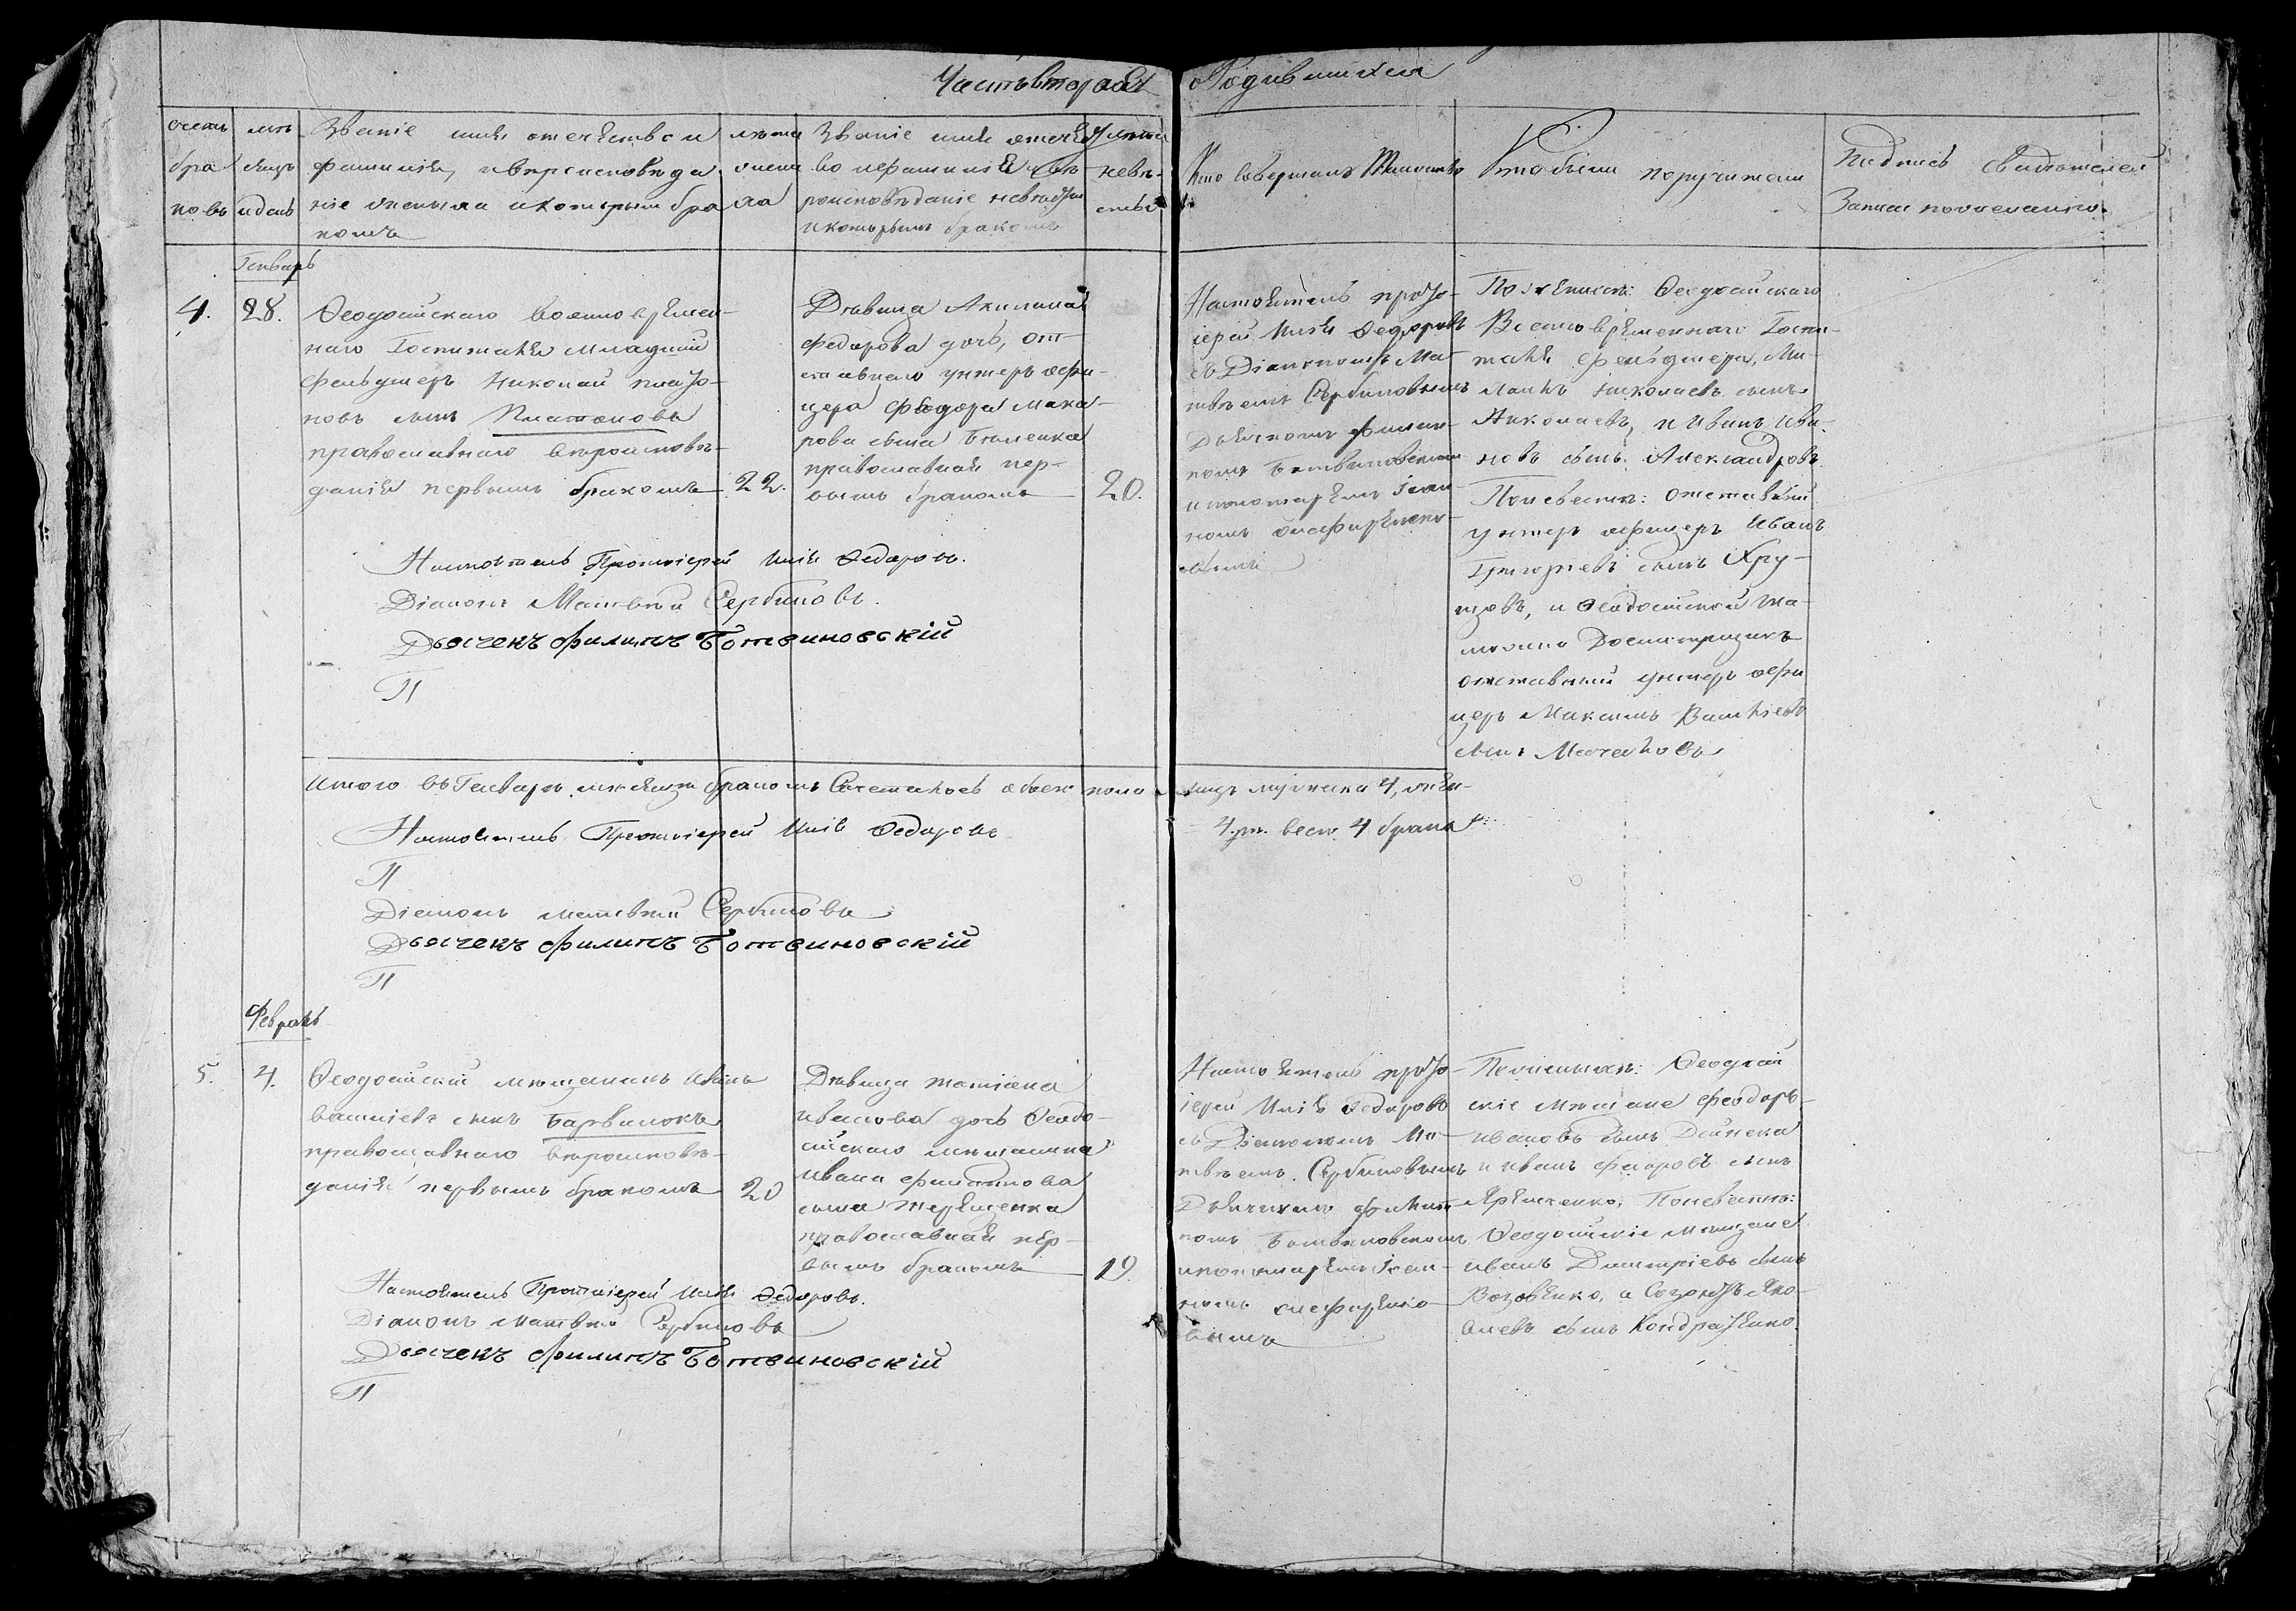 Часть вторая
о Родившихся
счетъ
бра
ковъ
мѣ
сяцъ
и день
Званіе имя отечество и
фамилія, и вѣроисповѣда
ніе жениха и которымъ бра
комъ
лѣта
жени
ха
Званіе имя отечест
во и фамилія вѣ
роисповѣданіе невѣсты
и которымъ бракомъ
лѣта
невѣ-
сты
Кто совершалъ Таинство
Кто были поручители
Подпись свидѣтелей
Записи по желанію.
Генварь
4.
28.
Ѳеодосійскаго военновремен-
наго Госпиталя младшій
фельдшеръ Николай плато-
новъ сынъ Платоновъ
православнаго вѣроисповѣ-
данія первымъ бракомъ
22.
Дѣвица Акилина
Федорова дочь, от-
ставнаго унтеръ офи-
цера Феодора Мака-
рова сына
православная пер-
вымъ бракомъ
20.
Настоятель прото-
іерей Илія Ѳедоровъ
съ Діакономъ Ма-
твѣемъ Сербиновымъ
Дьячкомъ Филип-
помъ Ботвиновскимъ
и пономаремъ Іоан-
номъ
По женихѣ: Ѳеодосійскаго
Военновременнаго Госпи-
таля фельдшера, Ми-
хаилъ Николаевъ сынъ
Николаевъ, и Иванъ Ива-
новъ сынъ Александровъ
По невѣстѣ: отставный
унтеръ офицеръ Иванъ
Григорьевъ сынъ Хру-
щовъ, и Ѳеодосійской та-
можни Досмотрщикъ
отставный унтеръ офи
церъ Максимъ Васильевъ
сынъ
Настоятель Протоіерей Илія Ѳедоровъ.
Діаконъ Матвѣй Сербиновъ.
Дьячекъ Филиппъ Ботвиновскій
П
Итого въ Генварѣ мѣсяцѣ бракомъ Сочетались обоего пола лицъ мужеска 4, жен-
4. всего 4 брака
Настоятель Протоіерей Илія Ѳедоровъ
П
Діаконъ Матвѣй Сербиновъ
Дьячекъ Филиппъ Ботвиновскій
П
Февраль
5.
4.
Ѳеодосійскій мѣщанинъ Иванъ
Васильевъ сынъ Барвинокъ
православнаго вѣроисповѣ-
данія первымъ бракомъ
20
Дѣвица Татіана
Иванова дочь Ѳеодо-
сійскаго мѣщанина
Ивана Филиппова
сына Терещенка
православная пер-
вымъ бракомъ
19.
Настоятель прото-
іерей Илія Ѳедоровъ
съ Діакономъ Ма-
твѣемъ Сербиновымъ
Дьячкомъ Филип-
помъ Ботвиновскимъ
и пономаремъ Іоан-
номъ
По женихѣ: Ѳеодосій
скіе мѣщане Феодоръ
Ивановъ сынъ Дейнека
и Иванъ Федоровъ сынъ
По невѣстѣ:
Ѳеодосійскіе мѣщане
Иванъ Димитріевъ сынъ
и Созонтъ Яко-
влевъ сынъ Кондратенко.
Настоятель Протоіерей Илія Ѳедоровъ.
Діаконъ Матвѣй Сербиновъ
Дьячекъ Филиппъ Ботвиновскій
П